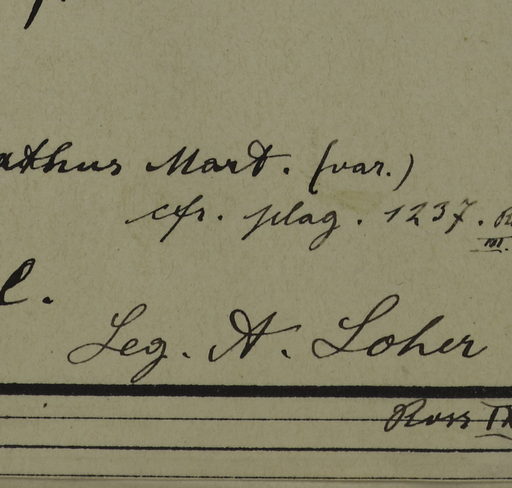 athus Mart. (var.)
cfr. plag. 1237.
III.
l.
Leg. A. Loher
Ross